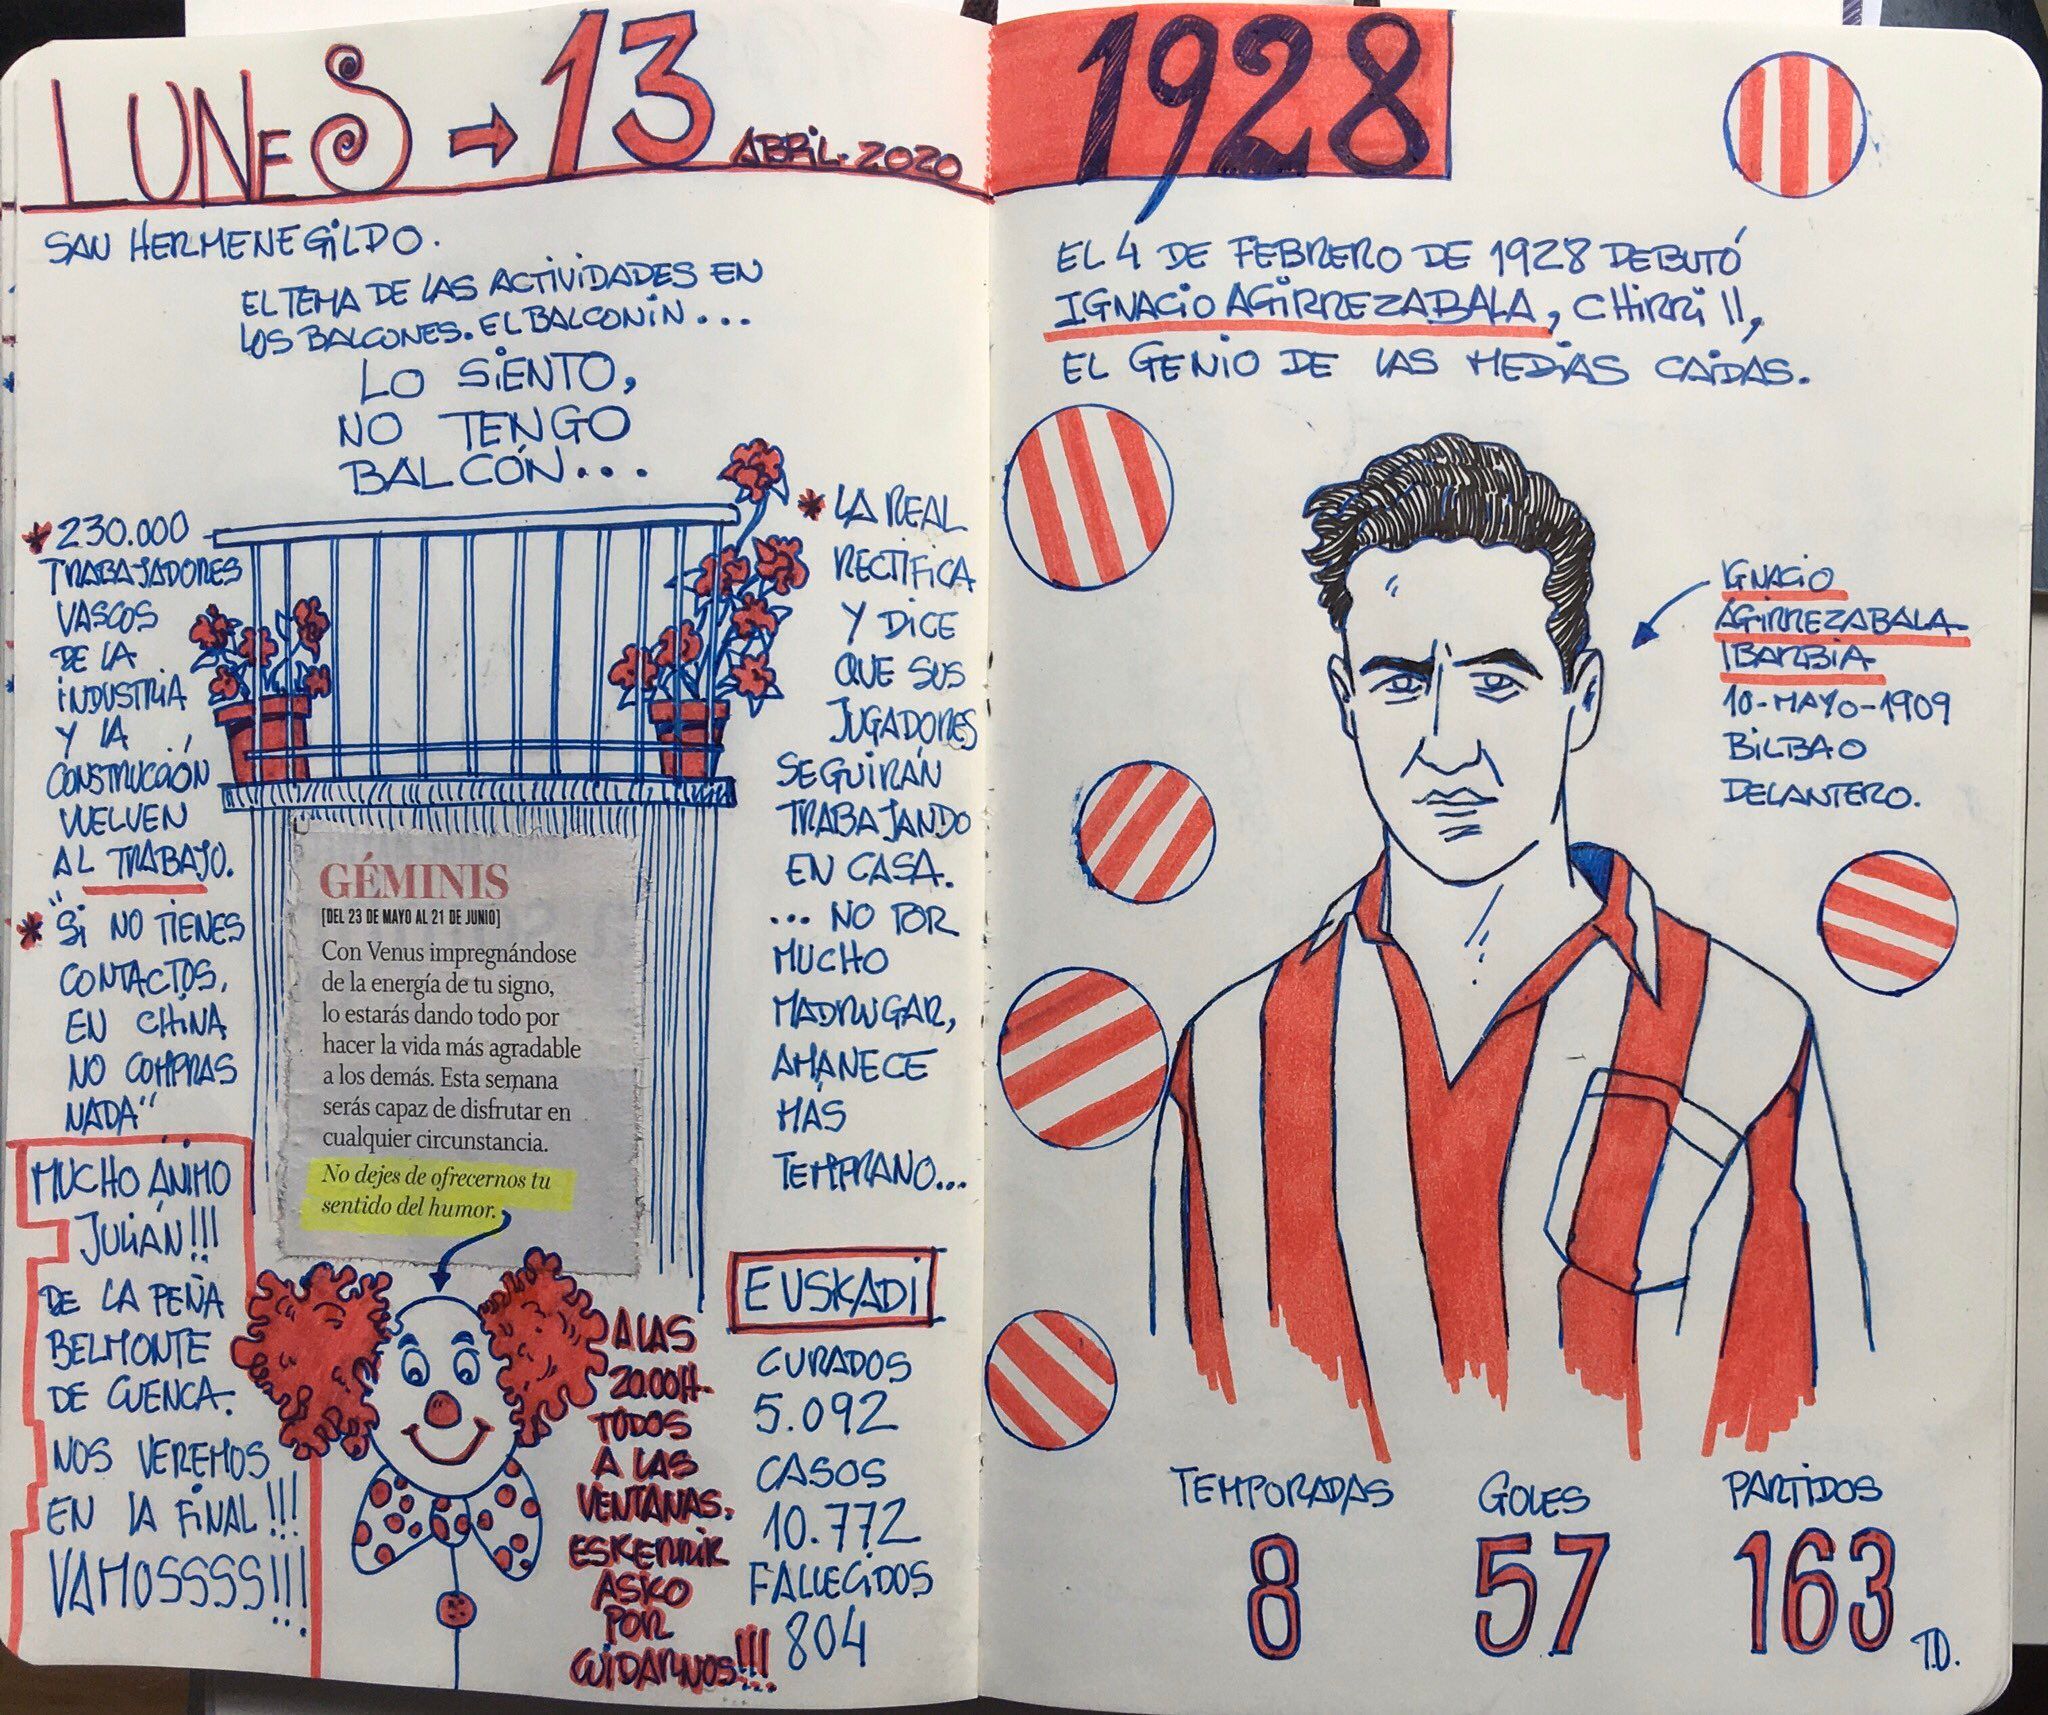 LUNES → 13 ABRIL. 2020
SAN HERMENEGILDO.
EL TEMA DE LAS ACTIVIDADES EN
LOS BALCONES. EL BALCONIN...
LO SIENTO,
NO TENGO
BALCÓN...
* 230.000
TRABAJADORES
VASCOS
DE LA
INDUSTRIA
Y LA
CONSTRUCCIÓN
VUELVEN
AL TRABAJO.
* "SI NO TIENES
CONTACTOS,
EN CHINA
NO COMPRAS
NADA"
MUCHO ÁNIMO
JULIÁN!!!
DE LA PEÑA
BELMONTE
DE CUENCA.
NOS VEREMOS
EN LA FINAL!!!
VAMOSSSS!!!
GÉMINIS
[DEL 23 DE MAYO AL 21 DE JUNIO]
Con Venus impregnándose
de la energía de tu signo,
lo estarás dando todo por
hacer la vida más agradable
a los demás. Esta semana
serás capaz de disfrutar en
cualquier circunstancia.
No dejes de ofrecernos tu
sentido del humor.
* LA REAL
RECTIFICA
Y DICE
QUE SUS
JUGADORES
SEGUIRÁN
TRABAJANDO
EN CASA.
... NO POR
MUCHO
MADRUGAR,
AMANECE
MÁS
TEMPRANO...
A LAS
20.00H.
TODOS
A LAS
VENTANAS.
ESKERRIK
ASKO
POR
CUIDARNOS!!!
EUSKADI
CURADOS
5.092
CASOS
10.772
FALLECIDOS
804
1928
EL 4 DE FEBRERO DE 1928 DEBUTÓ
IGNACIO AGIRREZABALA, CHIRRI II,
EL GENIO DE LAS MEDIAS CAIDAS.
IGNACIO
AGIRREZABALA
IBARBIA
10-MAYO-1909
BILBAO
DELANTERO.
TEMPORADAS GOLES PARTIDOS
8 57 163
T.D.